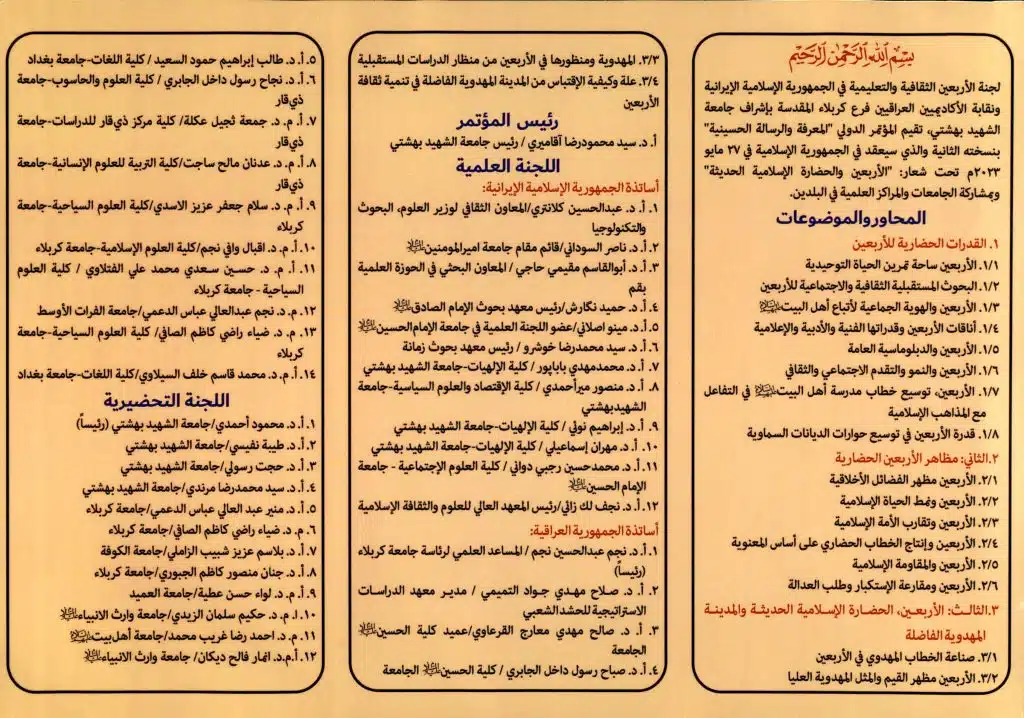 بسم الله الرحمن الرحيم
لجنة الأربعين الثقافية والتعليمية في الجمهورية الإسلامية الإيرانية
ونقابة الأكاديميين العراقيين فرع كربلاء المقدسة بإشراف جامعة
الشهيد بهشتي، تقيم المؤتمر الدولي "المعرفة والرسالة الحسينية"
بنسخته الثانية والذي سيعقد في الجمهورية الإسلامية في ٢٧ مايو
٢٠٢٣م تحت شعار: "الأربعين والحضارة الإسلامية الحديثة"
وبمشاركة الجامعات والمراكز العلمية في البلدين.
المحاور والموضوعات
١. القدرات الحضارية للأربعين
١/١. الأربعين ساحة تمرين الحياة التوحيدية
١/٢. البحوث المستقبلية الثقافية والاجتماعية للأربعين
١/٣. الأربعين والهوية الجماعية لأتباع أهل البيت
١/٤. أناقات الأربعين وقدراتها الفنية والأدبية والإعلامية
١/٥. الأربعين والدبلوماسية العامة
١/٦. الأربعين والنمو والتقدم الاجتماعي والثقافي
١/٧. الأربعين، توسيع خطاب مدرسة أهل البيت في التفاعل
مع المذاهب الإسلامية
١/٨. قدرة الأربعين في توسيع حوارات الديانات السماوية
٢.الثاني: مظاهر الأربعين الحضارية
٢/١. الأربعين مظهر الفضائل الأخلاقية
٢/٢. الأربعين ونمط الحياة الإسلامية
٢/٣. الأربعين وتقارب الأمة الإسلامية
٢/٤. الأربعين وإنتاج الخطاب الحضاري على أساس المعنوية
٢/٥. الأربعين والمقاومة الإسلامية
٢/٦. الأربعين ومقارعة الإستكبار وطلب العدالة
٣.الثالث: الأربعين، الحضارة الإسلامية الحديثة والمدينة
المهدوية الفاضلة
٣/١. صناعة الخطاب المهدوي في الأربعين
٣/٢. الأربعين مظهر القيم والمثل المهدوية العليا
٣/٣. المهدوية ومنظورها في الأربعين من منظار الدراسات المستقبلية
٣/٤. علة وكيفية الإقتباس من المدينة المهدوية الفاضلة في تنمية ثقافة
الأربعين
رئيس المؤتمر
أ. د. سيد محمودرضا آقاميري / رئيس جامعة الشهيد بهشتي
اللجنة العلمية
أساتذة الجمهورية الإسلامية الإيرانية:
١. أ. د. عبدالحسين كلانتري/المعاون الثقافي لوزير العلوم، البحوث
والتكنولوجيا
٢. أ. د. ناصر السوداني/قائم مقام جامعة اميرالمومنين
٣. أ. د. أبوالقاسم مقيمي حاجي / المعاون البحثي في الحوزة العلمية
بقم
٤. أ. د. حميد نگارش/رئيس معهد بحوث الإمام الصادق
٥. أ.د. مينو اصلاني/عضو اللجنة العلمية في جامعة الإمام الحسين
٦. أ.د. سيد محمدرضا خوشرو / رئيس معهد بحوث زمانة
٧. أ.د. محمدمهدي باباپور / كلية الإلهيات-جامعة الشهيد بهشتي
٨. أ.د. منصور ميرأحمدي / كلية الإقتصاد والعلوم السياسية-جامعة
الشهيدبهشتي
٩. أ.د. إبراهيم نوئي / كلية الإلهيات-جامعة الشهيد بهشتي
١٠. أ.د. مهران إسماعيلي / كلية الإلهيات-جامعة الشهيد بهشتي
١١. أ.د. محمدحسين رجبي دواني / كلية العلوم الإجتماعية - جامعة
الإمام الحسين
١٢. أ.د. نجف لك زائي/رئيس المعهد العالي للعلوم والثقافة الإسلامية
أساتذة الجمهورية العراقية:
١. أ.د. نجم عبدالحسين نجم / المساعد العلمي لرئاسة جامعة كربلاء
(رئيساً)
٢. أ.د. صلاح مهدي جواد التميمي / مدير معهد الدراسات
الاستراتيجية للحشد الشعبي
٣. أ.د. صالح مهدي معارج القرعاوي/عميد كلية الحسين
الجامعة
٤. أ.د. صباح رسول داخل الجابري / كلية الحسين الجامعة
٥. أ. د. طالب إبراهيم حمود السعيد / كلية اللغات-جامعة بغداد
٦. أ. د. نجاح رسول داخل الجابري / كلية العلوم والحاسوب-جامعة
ذي‌قار
٧. أ. م. د. جمعة ثجيل عكلة/ كلية مركز ذي‌قار للدراسات-جامعة
ذي‌قار
٨. أ. م. د. عدنان مالح ساجت/كلية التربية للعلوم الإنسانية-جامعة
ذي‌قار
٩. أ. م. د. سلام جعفر عزيز الاسدي/كلية العلوم السياحية-جامعة
كربلاء
١٠. أ. م. د. اقبال وافي نجم/كلية العلوم الإسلامية-جامعة كربلاء
١١. أ. م. د. حسين سعدي محمد علي الفتلاوي / كلية العلوم
السياحية - جامعة كربلاء
١٢. م.د. نجم عبدالعالي عباس الدعمي/جامعة الفرات الأوسط
١٣. م.د. ضياء راضي كاظم الصافي/ كلية العلوم السياحية-جامعة
كربلاء
١٤. أ.م.د. محمد قاسم خلف السيلاوي/كلية اللغات-جامعة بغداد
اللجنة التحضيرية
١. أ.د. محمود أحمدي/جامعة الشهيد بهشتي (رئيساً)
٢. أ.د. طيبة نفيسي/جامعة الشهيد بهشتي
٣. أ.د. حجت رسولي/جامعة الشهيد بهشتي
٤. أ.د. سيد محمدرضا مرندي/جامعة الشهيد بهشتي
٥. أ.د. منير عبد العالي عباس الدعمي/جامعة كربلاء
٦. م.د. ضياء راضي كاظم الصافي/ جامعة كربلاء
٧. أ.د. بلاسم عزيز شبيب الزاملي/جامعة الكوفة
٨. أ.د. جنان منصور كاظم الجبوري/جامعة كربلاء
٩. أ.م.د. لواء حسن عطية/جامعة العميد
١٠. ا.م.د. حكيم سلمان الزيدي/جامعة وارث الانبياء
١١. م.د. احمد رضا غريب محمد/جامعة أهل‌بيت
١٢. أ.م.د. انمار فالح ديكان/ جامعة وارث الانبياء